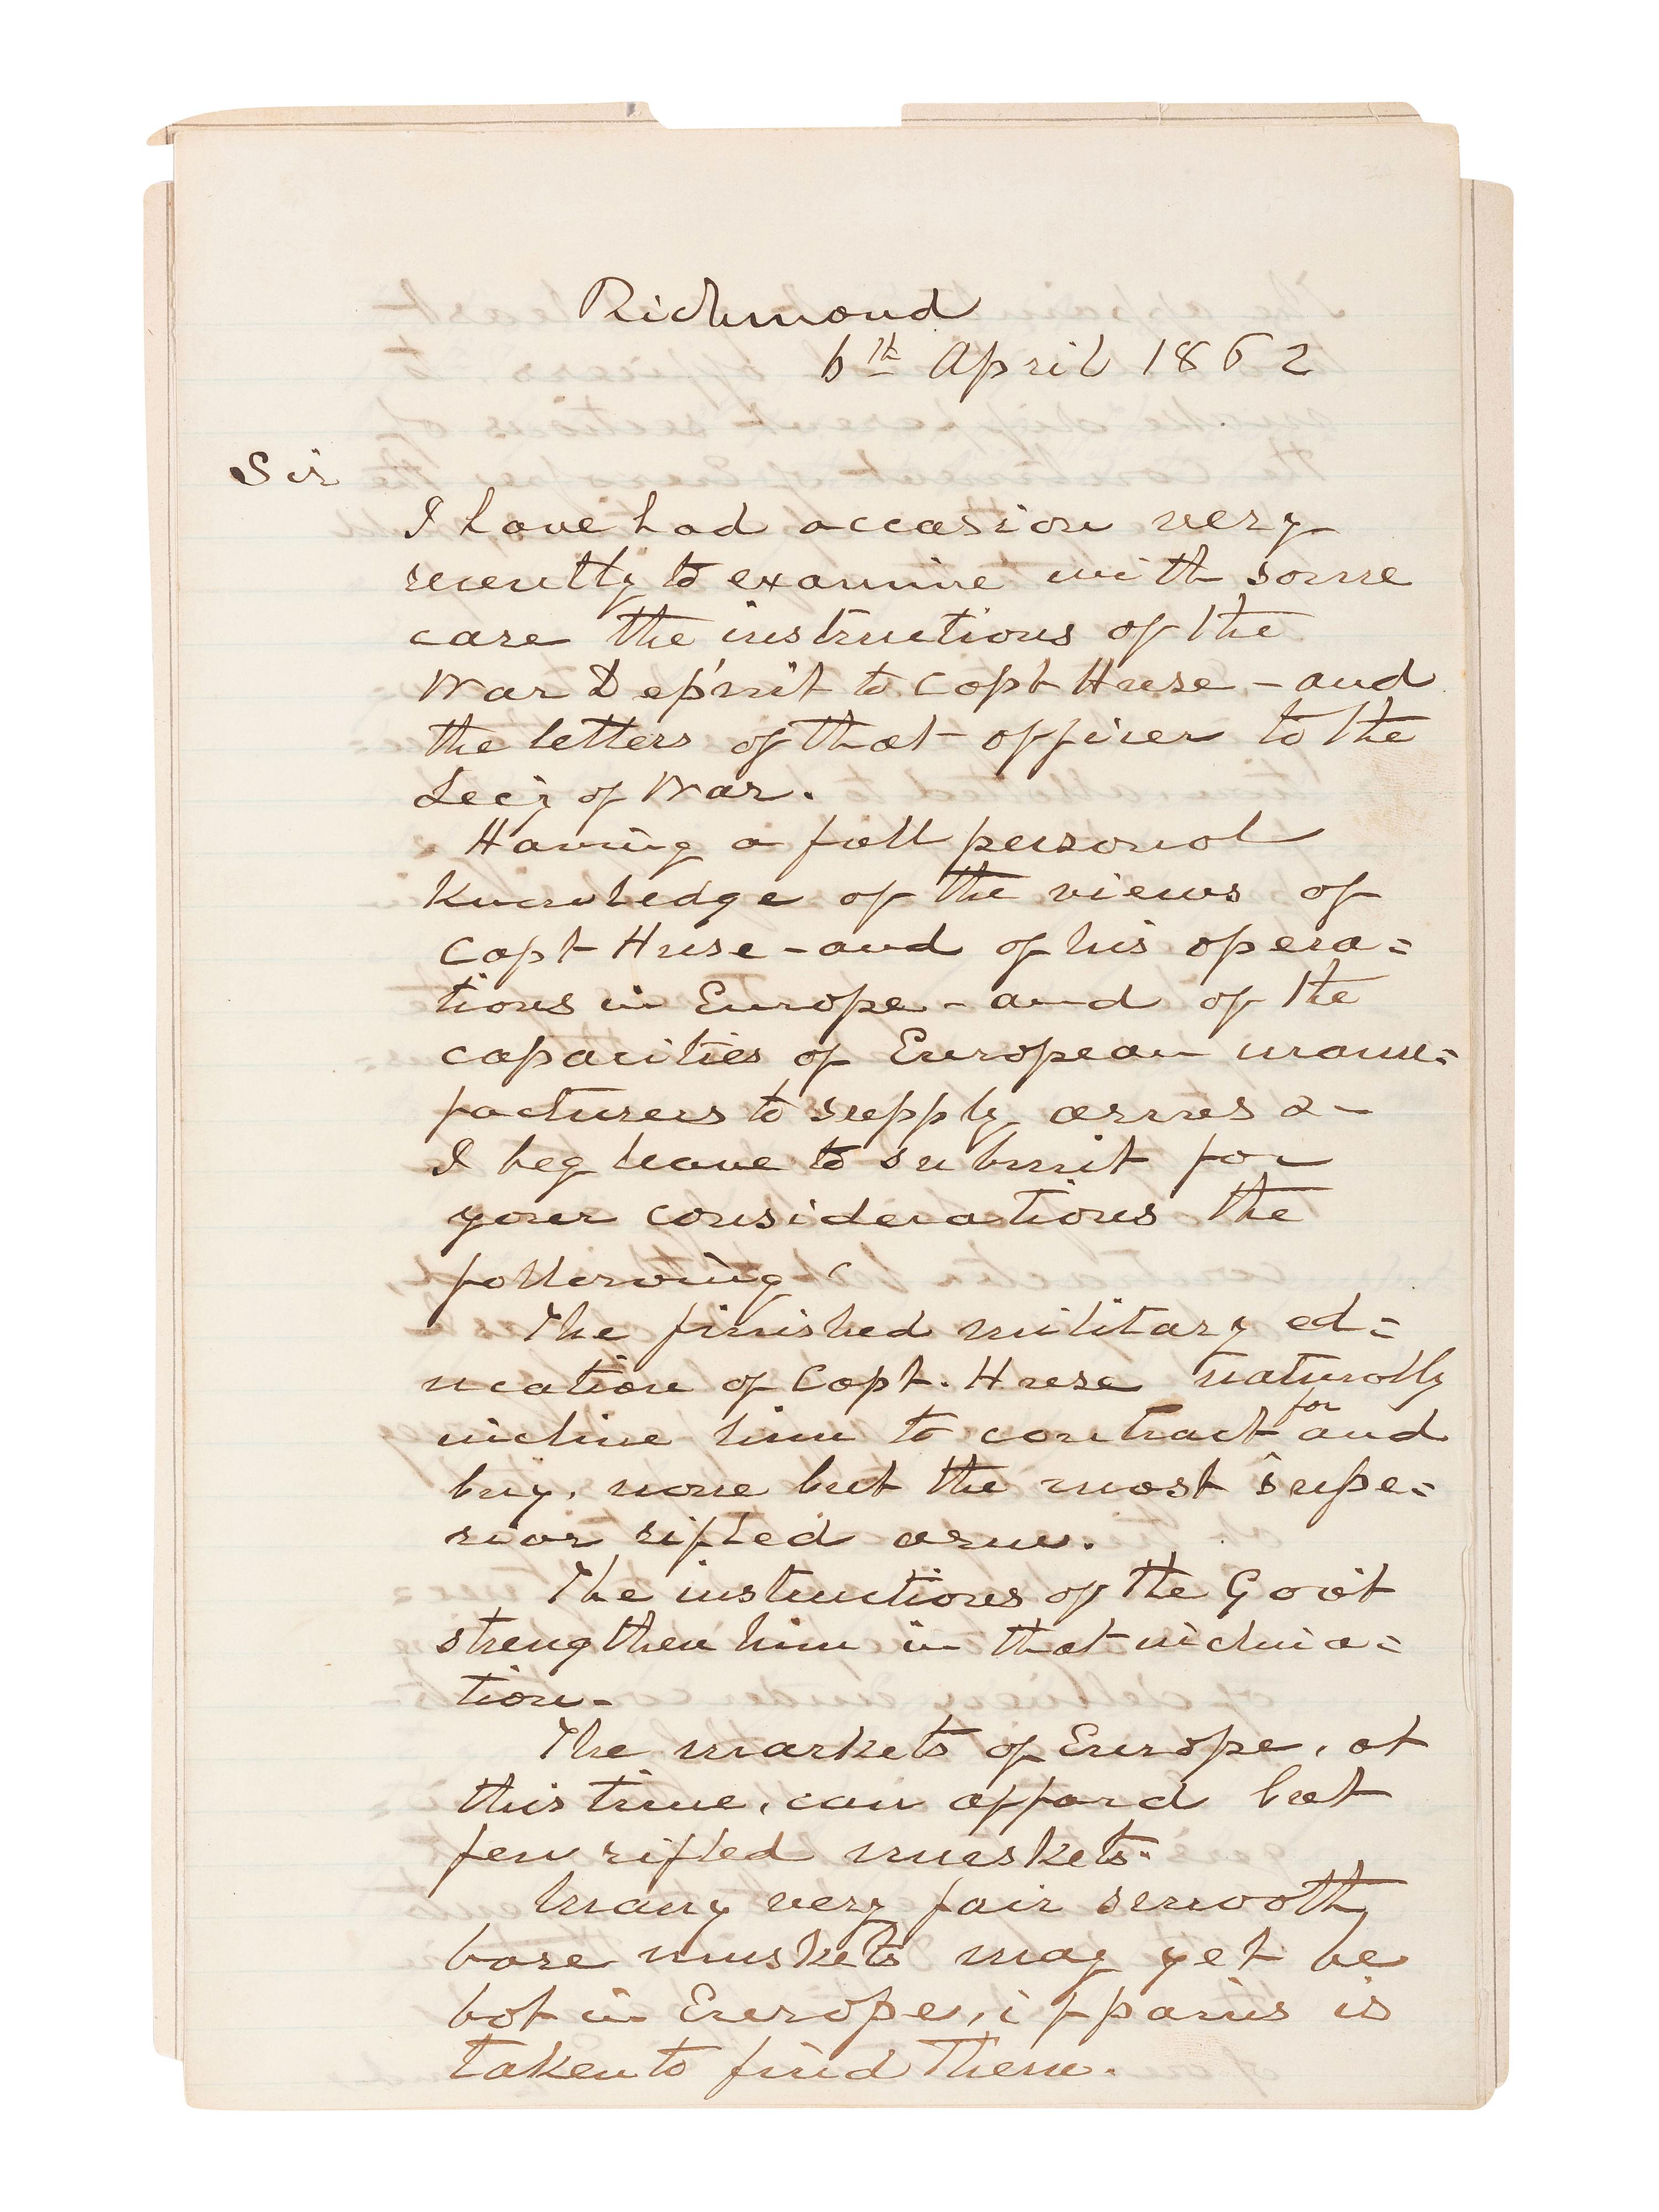 Richmond
6th April 1862
Sir
I have had occasion very
recently to examine with some
care the instructions of the
War Dep'mt to Capt Huse - and
the letters of that officer to the
Sec'y of War.
Having a full personal
knowledge of the views of
Capt Huse - and of his opera=
tions in Europe - and of the
capacities of European manu=
facturers to supply arms &-
I beg leave to submit for
your considerations the
following
The finished military ed=
ucation of Capt. Huse naturally
incline him to contract ^for and
buy, none but the most supe=
rior rifled arms.
The instructions of the Gov't
strengthen him in that inclina=
tion-
The markets of Europe, at
this time, can afford but
few rifled muskets.
Many very fair smooth
bore muskets may yet be
bot in Europe, if pains is
taken to find them.